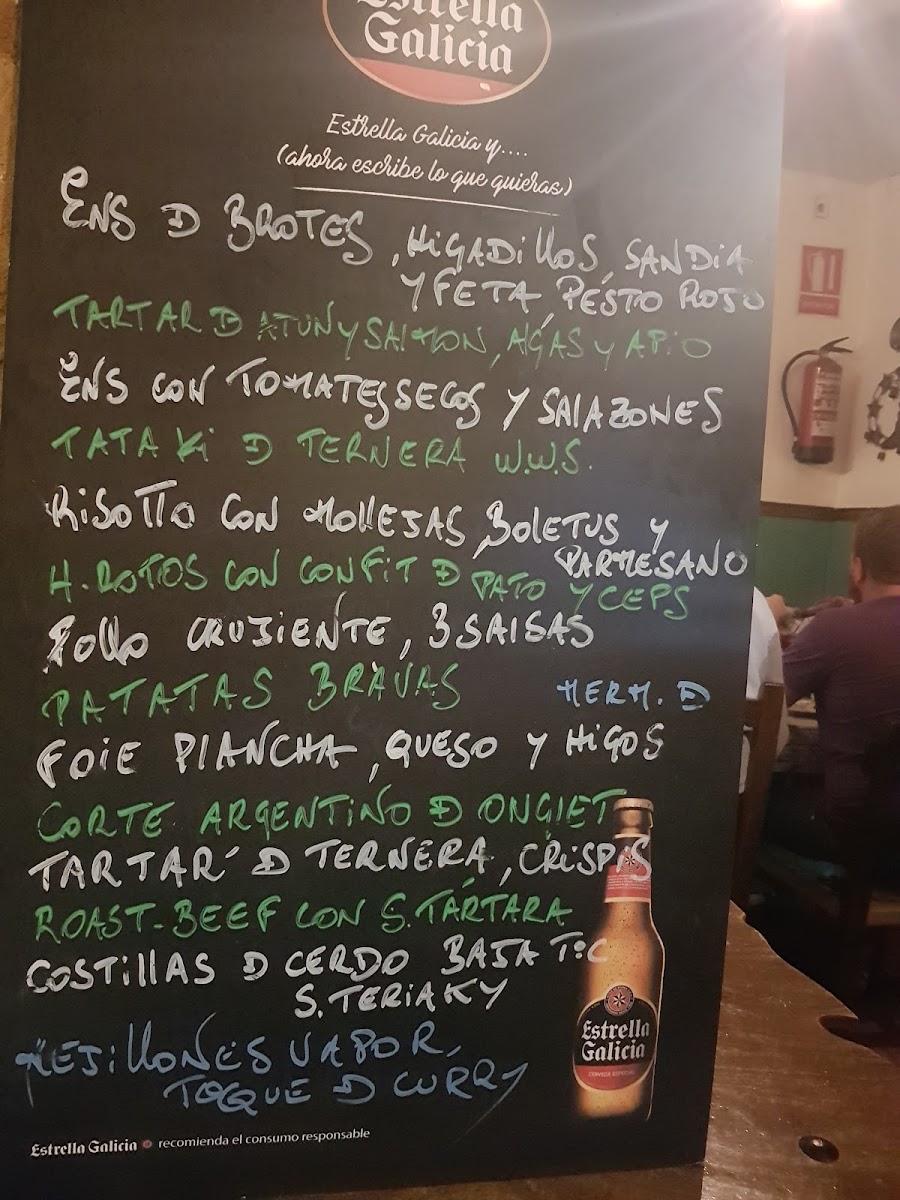 Estrella
Galicia
Estrella Galicia y....
(ahora escribe lo que quieras)
ENS D BROTES, HIGADILLOS, SANDIA
Y FETA, PESTO ROJO
TARTAR D ATUN Y SALMON, ALGAS Y APIO
ENS CON TOMATES SECOS Y SALAZONES
TATAKI D TERNERA W.W.S.
RISOTTO CON MOLLEJAS, BOLETUS Y
PARMESANO
H. ROTOS CON CONFIT D PATO Y CEPS
POLLO CRUJIENTE, 3 SALSAS
PATATAS BRAVAS
MERM. D
FOIE PLANCHA, QUESO Y HIGOS
CORTE ARGENTINO D ONGLET
TARTAR D TERNERA, CRISPIS
ROAST-BEEF CON S. TÁRTARA
COSTILLAS D CERDO BAJA TºC
S. TERIAKY
MEJILLONES VAPOR,
TOQUE D CURRY
Estrella
Galicia
CERVEZA ESPECIAL
Estrella Galicia recomienda el consumo responsable